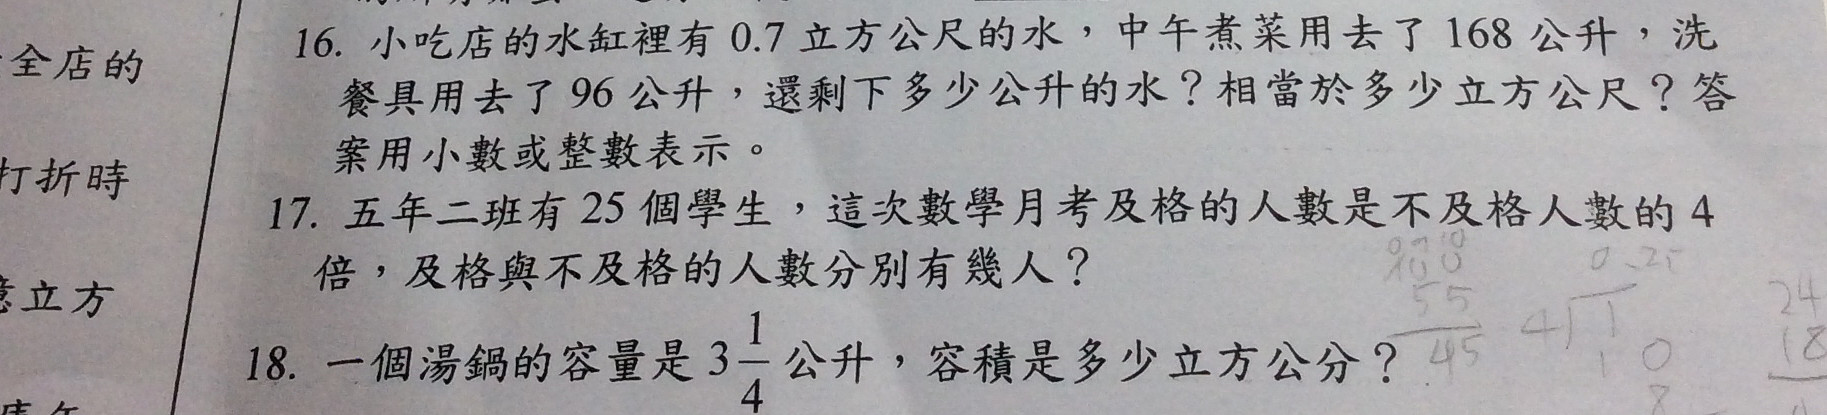 全店的
打折時
立方
16. 小吃店的水缸裡有 0.7 立方公尺的水，中午煮菜用去了 168 公升，洗
餐具用去了 96 公升，還剩下多少公升的水？相當於多少立方公尺？答
案用小數或整數表示。
17. 五年二班有 25 個學生，這次數學月考及格的人數是不及格人數的 4
倍，及格與不及格的人數分別有幾人？
18. 一個湯鍋的容量是 3 1/4 公升，容積是多少立方公分？
100
55
45
0.25
4 1
1 0
8
24
18